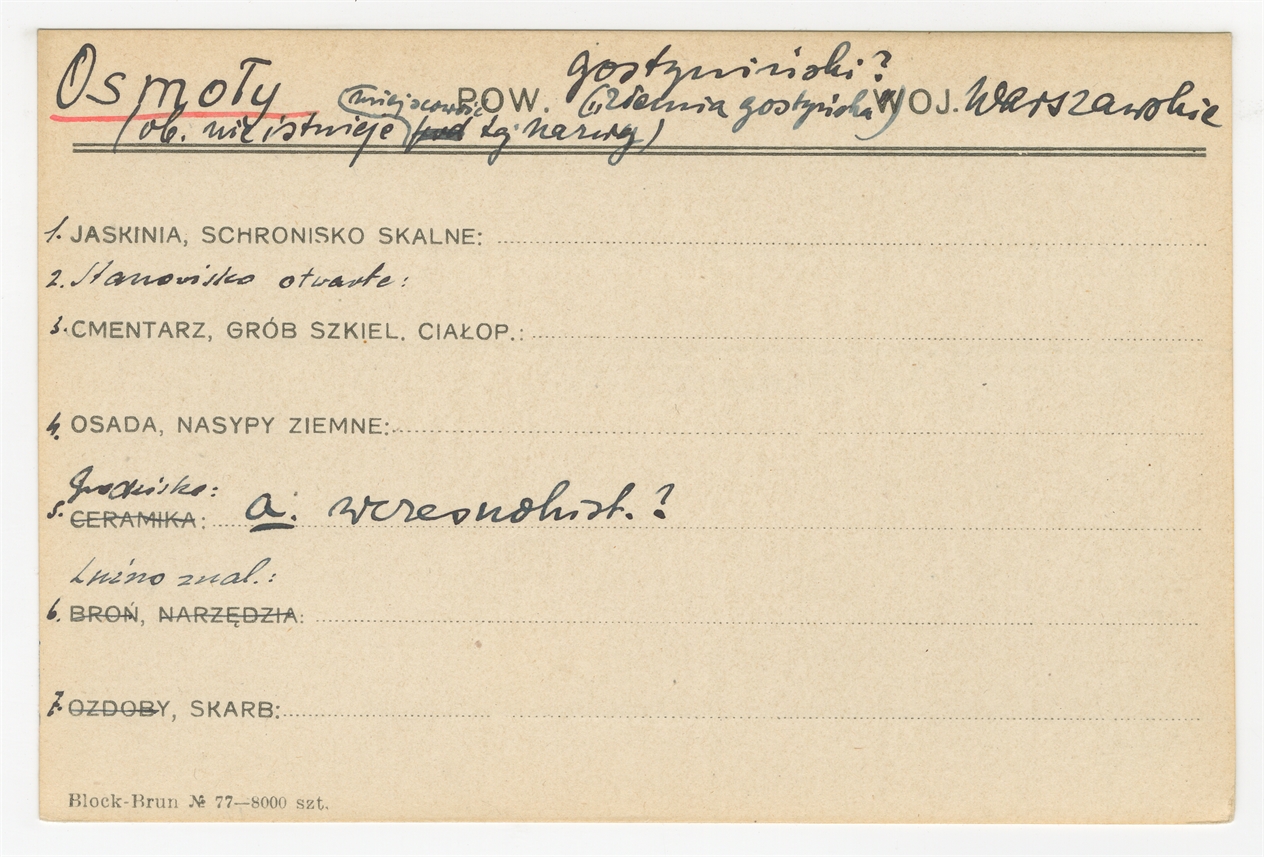 Osmoły POW. gostyniński? („ziemia gostyńska”) WOJ. Warszawskie
(ob. nie istnieje (miejscowość) pod tą nazwą)
1. JASKINIA, SCHRONISKO SKALNE:
2. Stanowisko otwarte:
3. CMENTARZ, GRÓB SZKIEL. CIAŁOP.:
4. OSADA, NASYPY ZIEMNE:
Grodzisko:
5. CERAMIKA: a. wczesnohist.?
Luźno znal.:
6. BROŃ, NARZĘDZIA:
7. OZDOBY, SKARB:
Block-Brun № 77—8000 szt.